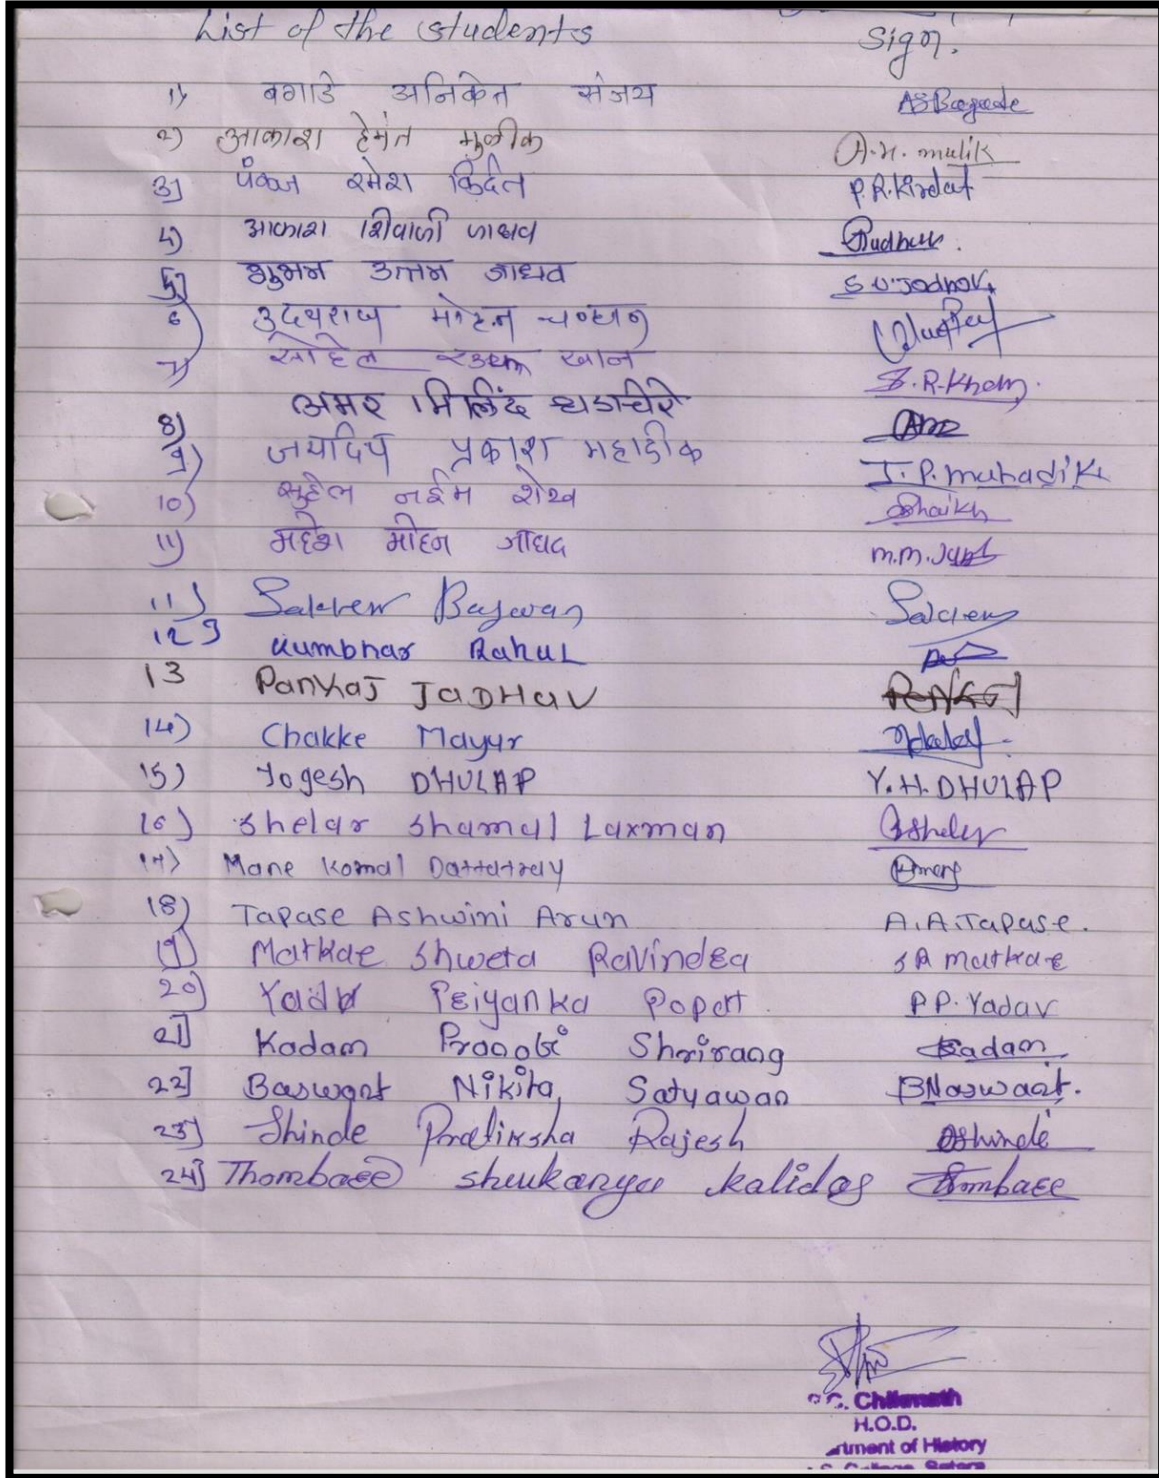 List of the students Sign.
1) बगाडे अनिकेत संजय ASBagade
2) आकाश हेमंत मुळीक A.H. mulik
3] पंकज रमेश किर्दत P.R.Kirdat
4) आकाश शिवाजी जाधव
5] शुभम उत्तम जाधव S.U.Jadhav
6) उदयराज मोहन चव्हाण
7) सोहेल खान S.R.Khan
8) अमर मिलिंद
9) जयदिप प्रकाश महाडीक J.P.Mahadik
10) सुहेल नईम शेख Shaikh
11) महेश मोहन जाधव m.m.
11) Bagwan
12) Kumbhar Rahul
13 Pankaj JADHAV Pankaj
14) Chakke Mayur
15) Yogesh DHULAP Y.H.DHULAP
16) Shelar Shamal Laxman
17) Mane Komal Dattatray
18) Tapase Ashwini Arun A.A.Tapase.
19) Matkar Shweta Ravindra S R matkar
20) Yadav Priyanka Popat P.P.Yadav
21] Kadam Shrirang Kadam
22] Baswant Nikita Satyawan BNaswant.
23] Shinde Pratiksha Rajesh Shinde
24] Thombare kalidas
C. Chikmath
H.O.D.
rtment of History
College, Satara